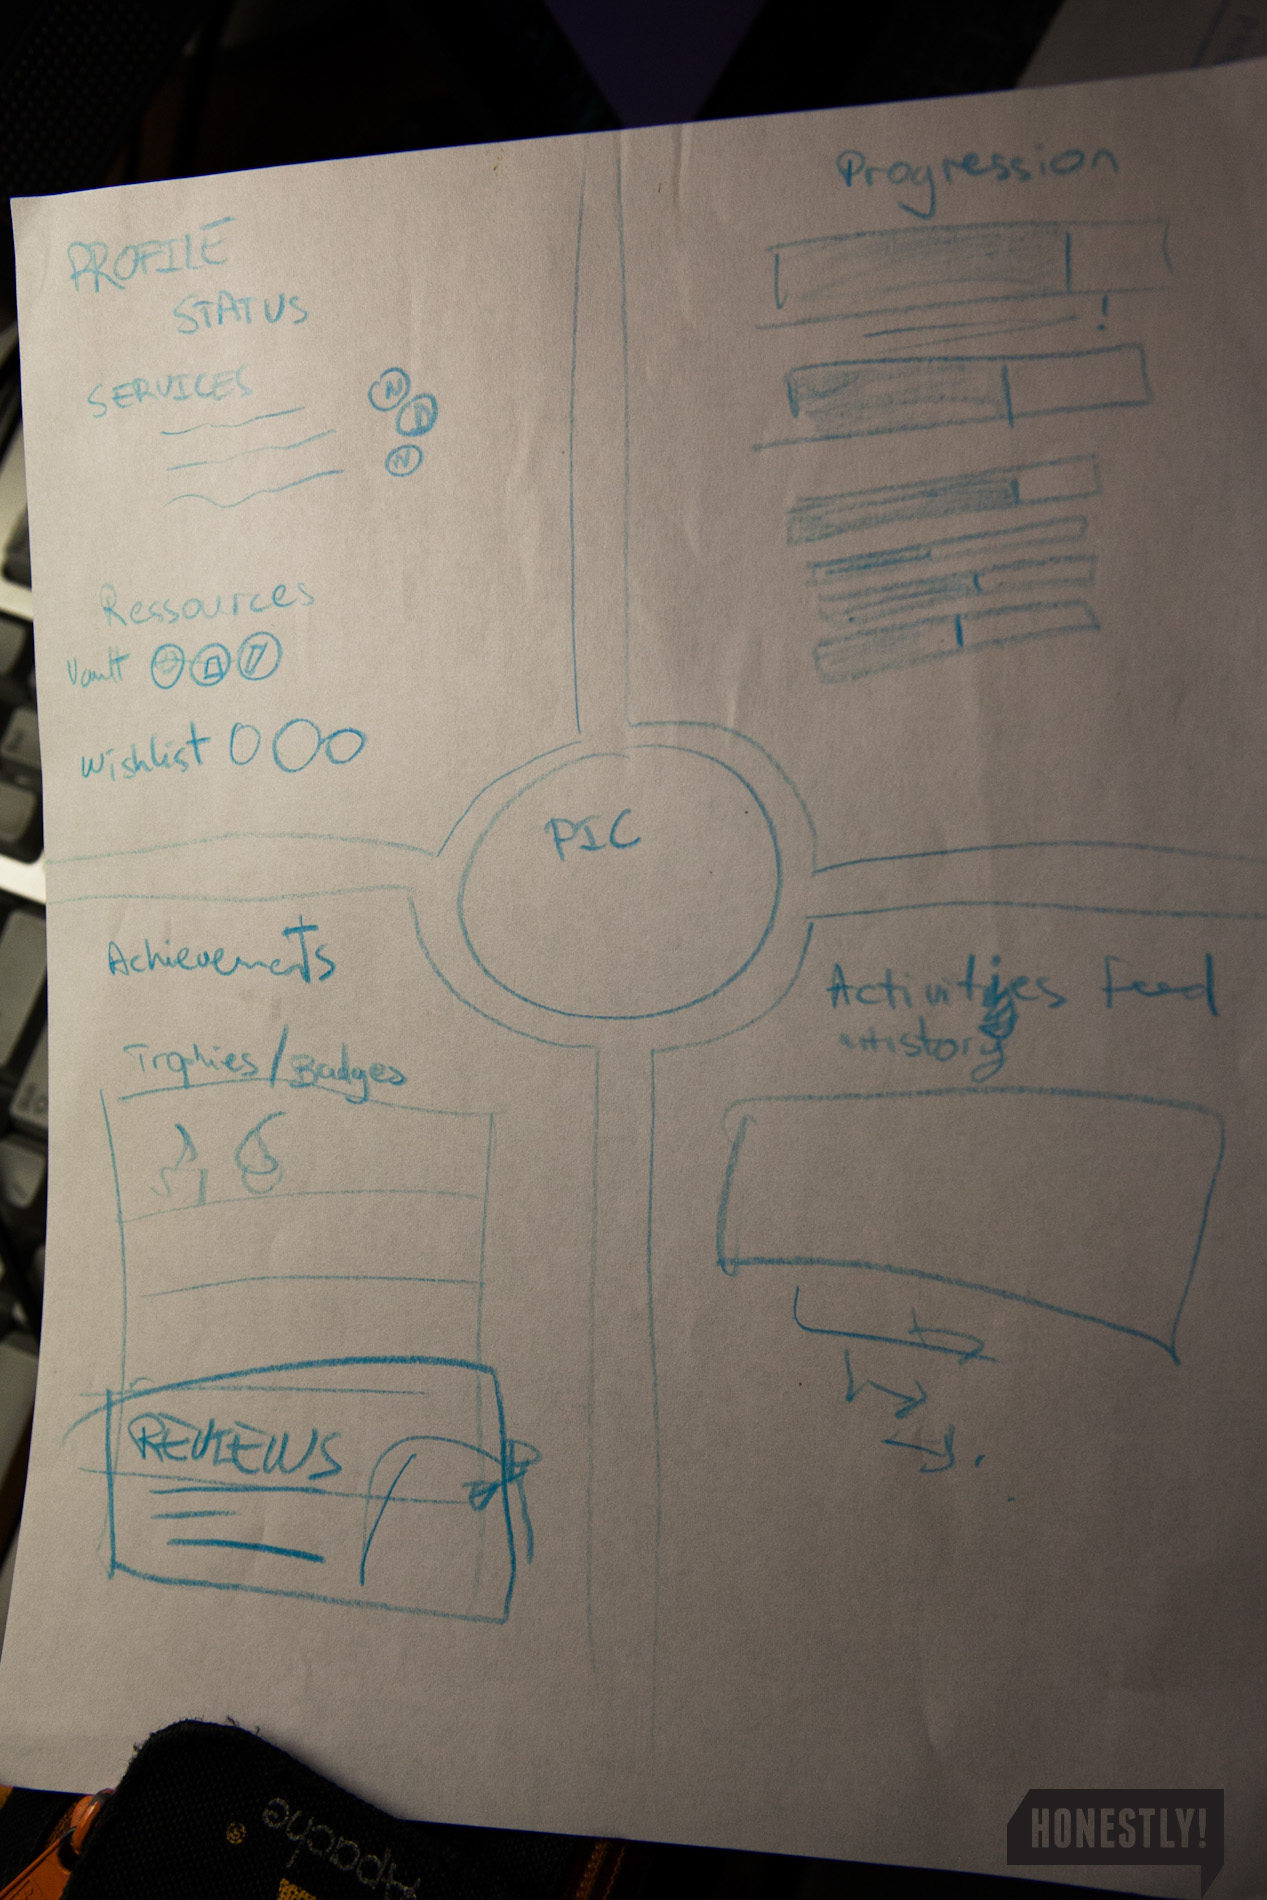 PROFILE
STATUS
SERVICES
N
N
Ressources
Vault
Wishlist
Progression
!
PIC
Achievements
Trophies/Badges
REVIEWS
Activities Feed
History
Apache
HONESTLY!